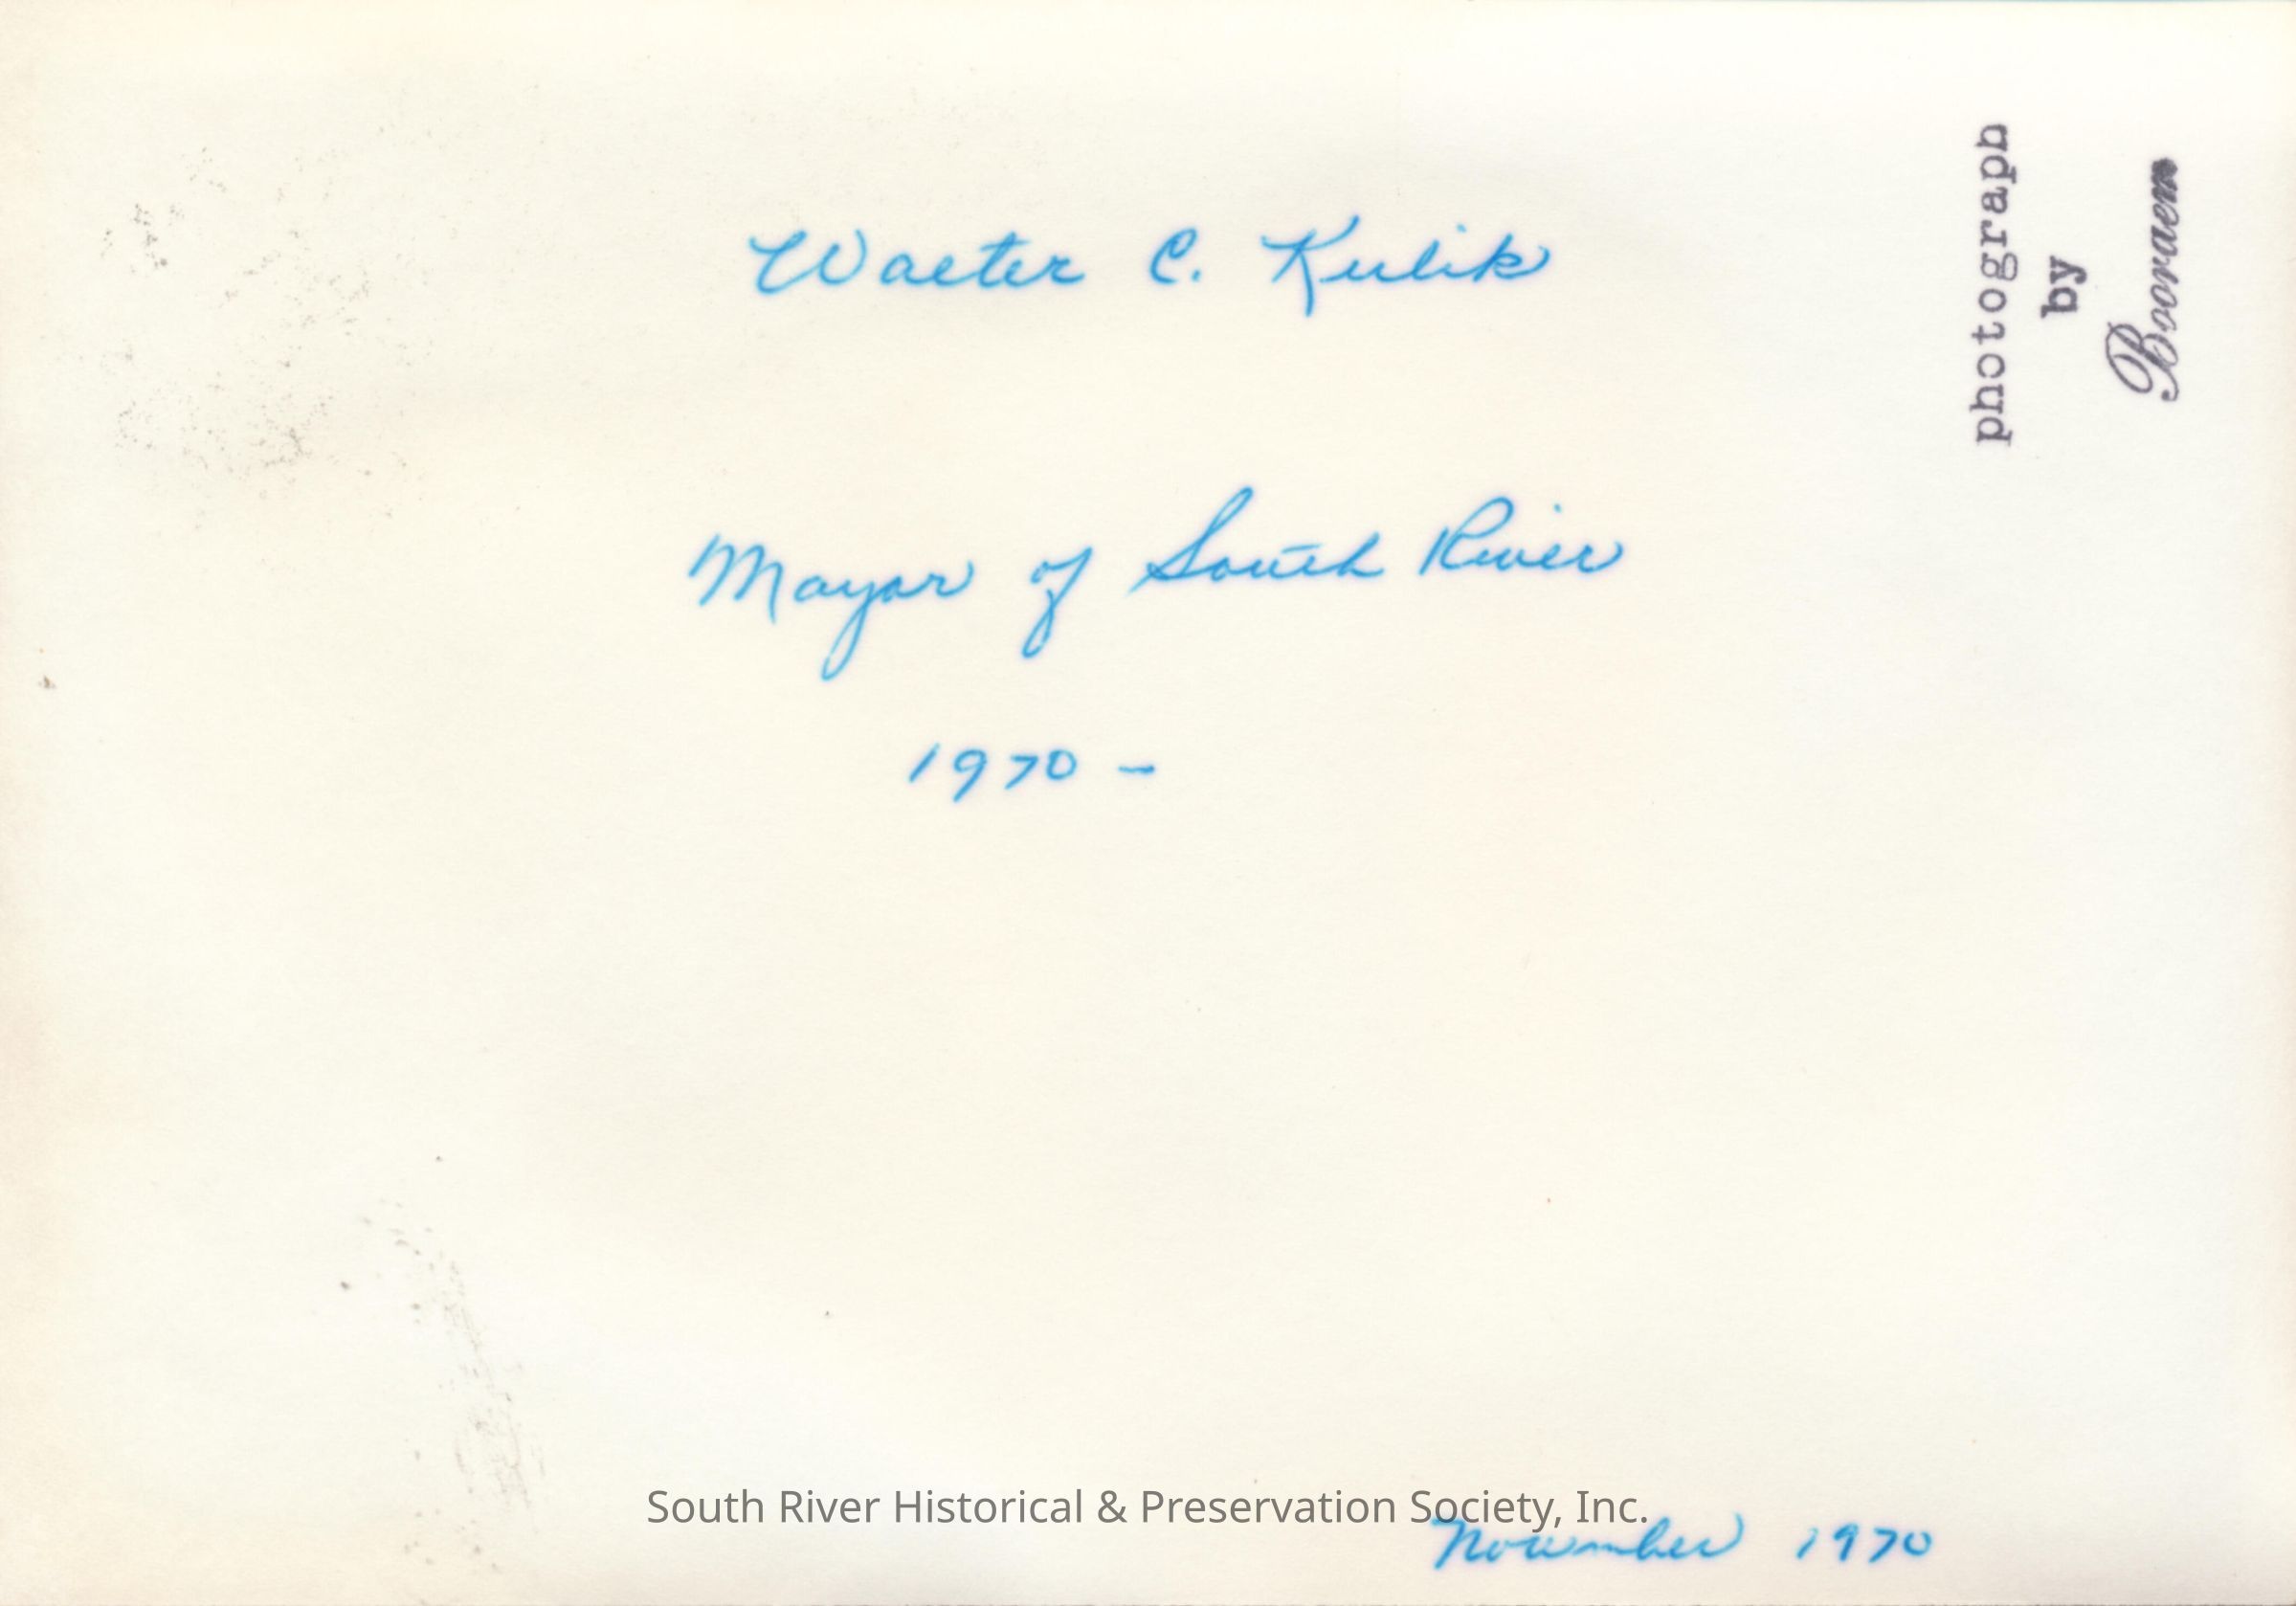 Walter C. Kulik
photograph
by
Booraem
Mayor of South River
1970 -
South River Historical & Preservation Society, Inc.
November 1970